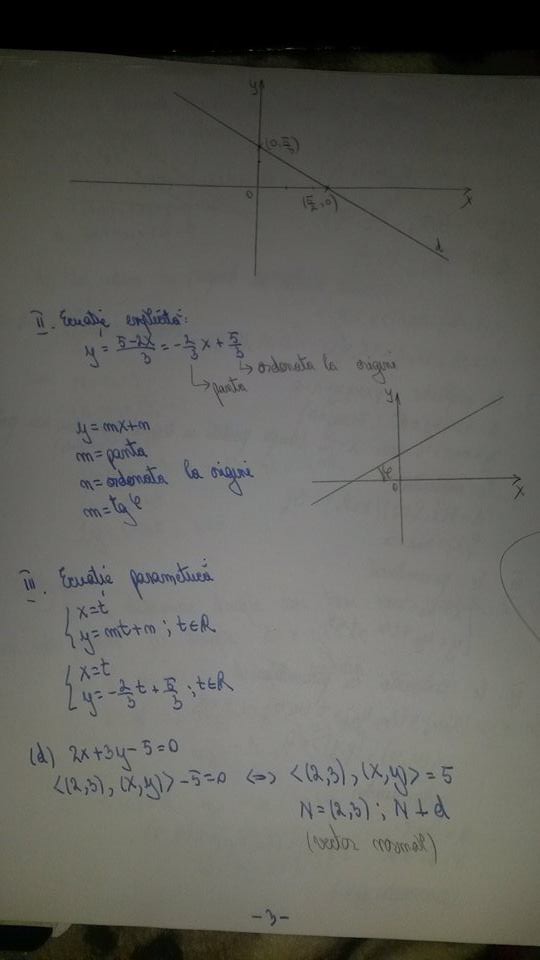 y
(0, 5/3)
0
(5/2, 0)
x
d
II. Ecuație explicită:
y = (5-2x)/3 = -2/3 x + 5/3
→ ordonata la origini
→ panta
y
y = mx+n
m = panta
n = ordonata la origini
m = tg φ
φ
0
x
III. Ecuație parametrică
{ x=t
y=mt+n ; t∈R
{ x=t
y= -2/3 t + 5/3 ; t∈R
(d) 2x+3y-5=0
<(2,3), (x,y)> -5=0 ⇔ <(2,3), (x,y)> = 5
N=(2,3) ; N⊥d
(vector normal)
-3-